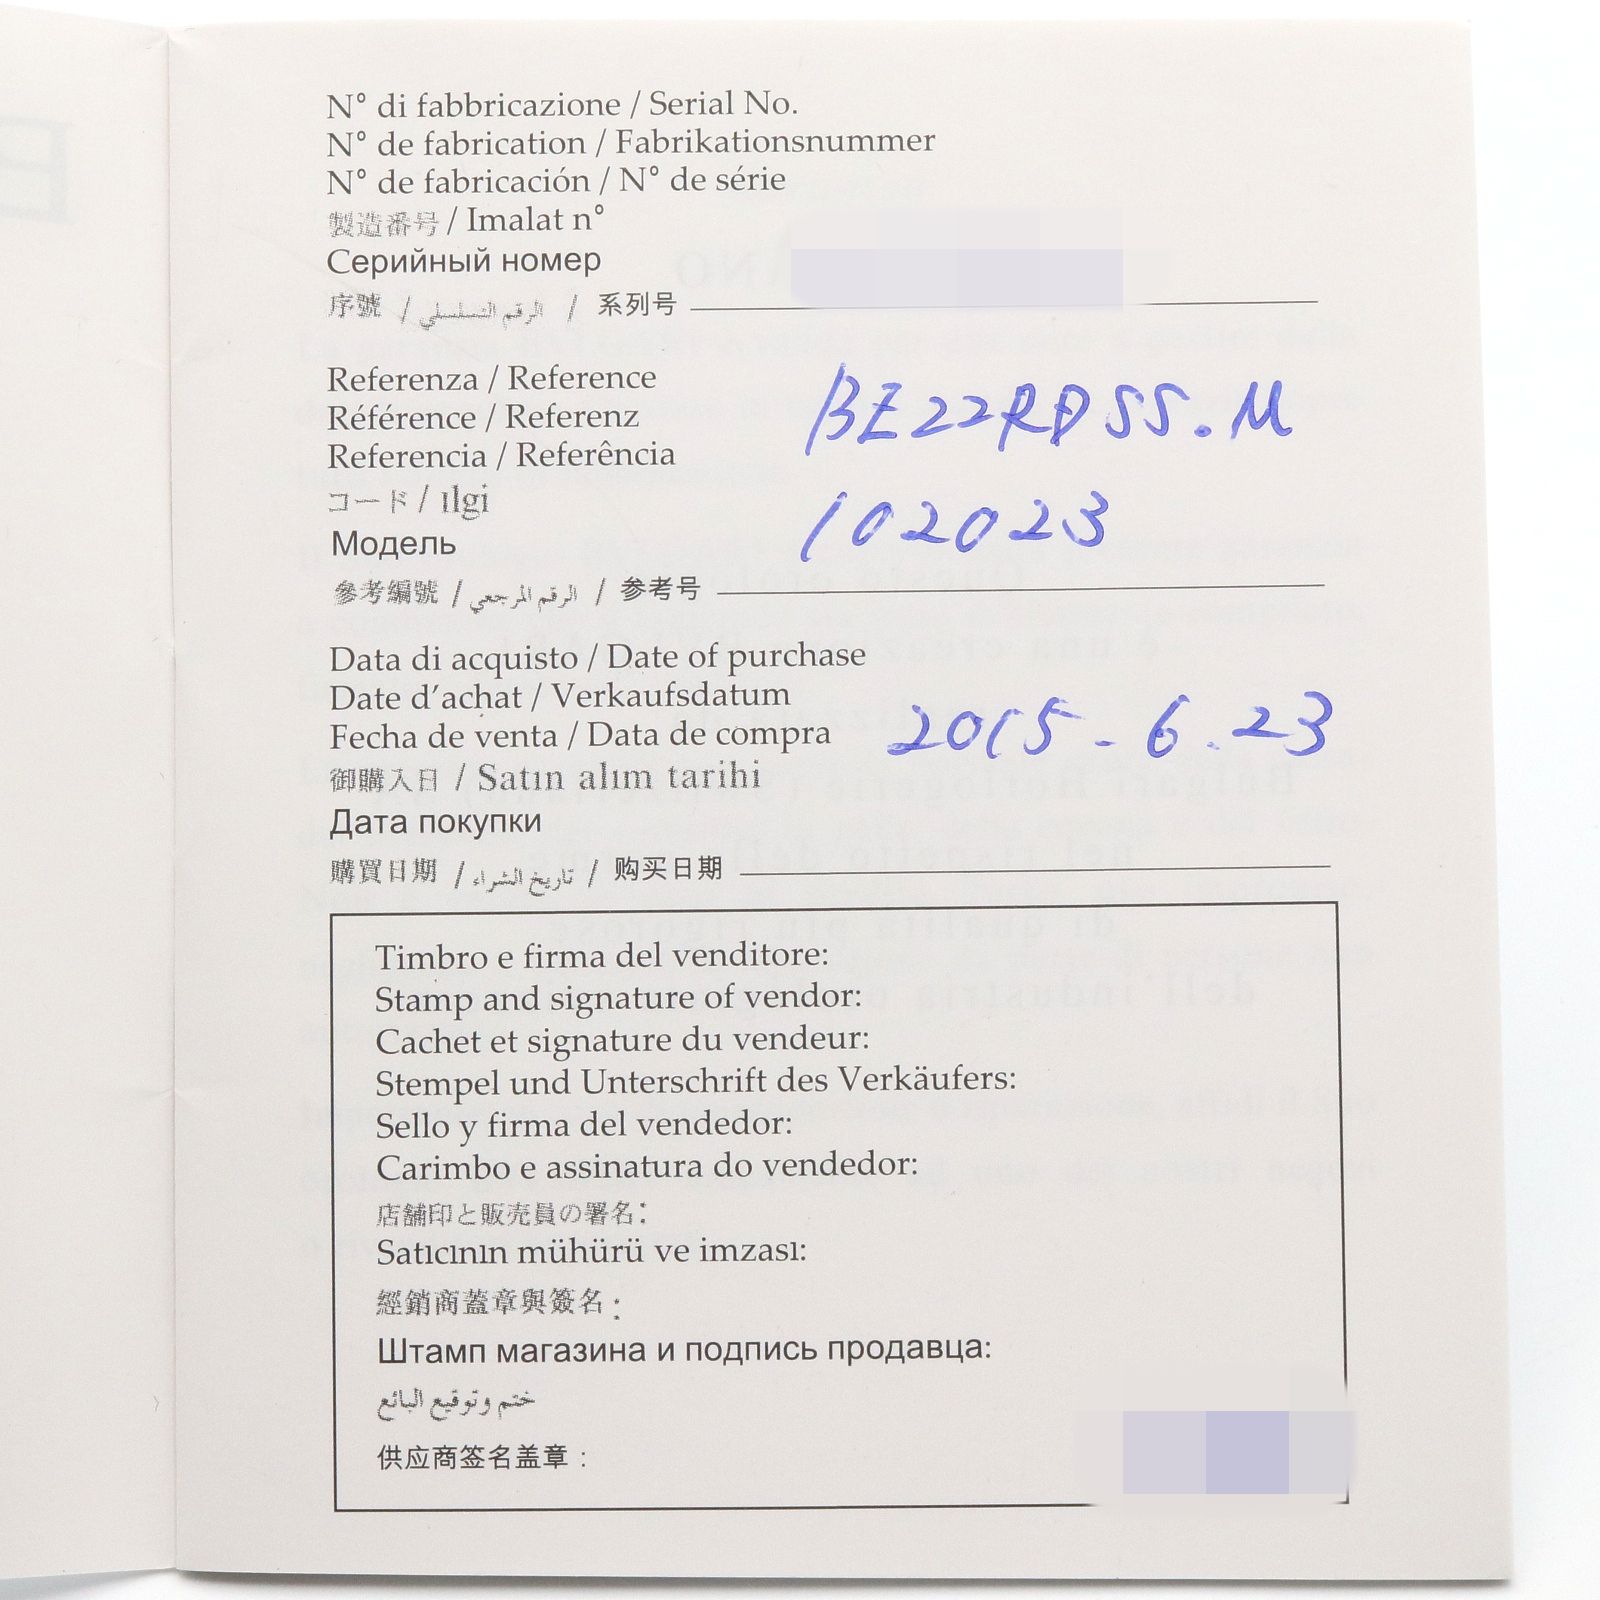 N° di fabbricazione / Serial No.
N° de fabrication / Fabrikationsnummer
N° de fabricación / N° de série
製造番号 / Imalat n°
Серийный номер
序號 / الرقم التسلسلي / 系列号
Referenza / Reference
Référence / Referenz
Referencia / Referência
コード / ılgi
Модель
參考編號 / الرقم المرجعي / 参考号
BEZ22RDSS.M
102023
Data di acquisto / Date of purchase
Date d'achat / Verkaufsdatum
Fecha de venta / Data de compra
御購入日 / Satın alım tarihi
Дата покупки
購買日期 / تاريخ الشراء / 购买日期
2015-6.23
Timbro e firma del venditore:
Stamp and signature of vendor:
Cachet et signature du vendeur:
Stempel und Unterschrift des Verkäufers:
Sello y firma del vendedor:
Carimbo e assinatura do vendedor:
店舗印と販売員の署名:
Satıcının mühürü ve imzası:
經銷商蓋章與簽名:
Штамп магазина и подпись продавца:
ختم وتوقيع البائع
供应商签名盖章: